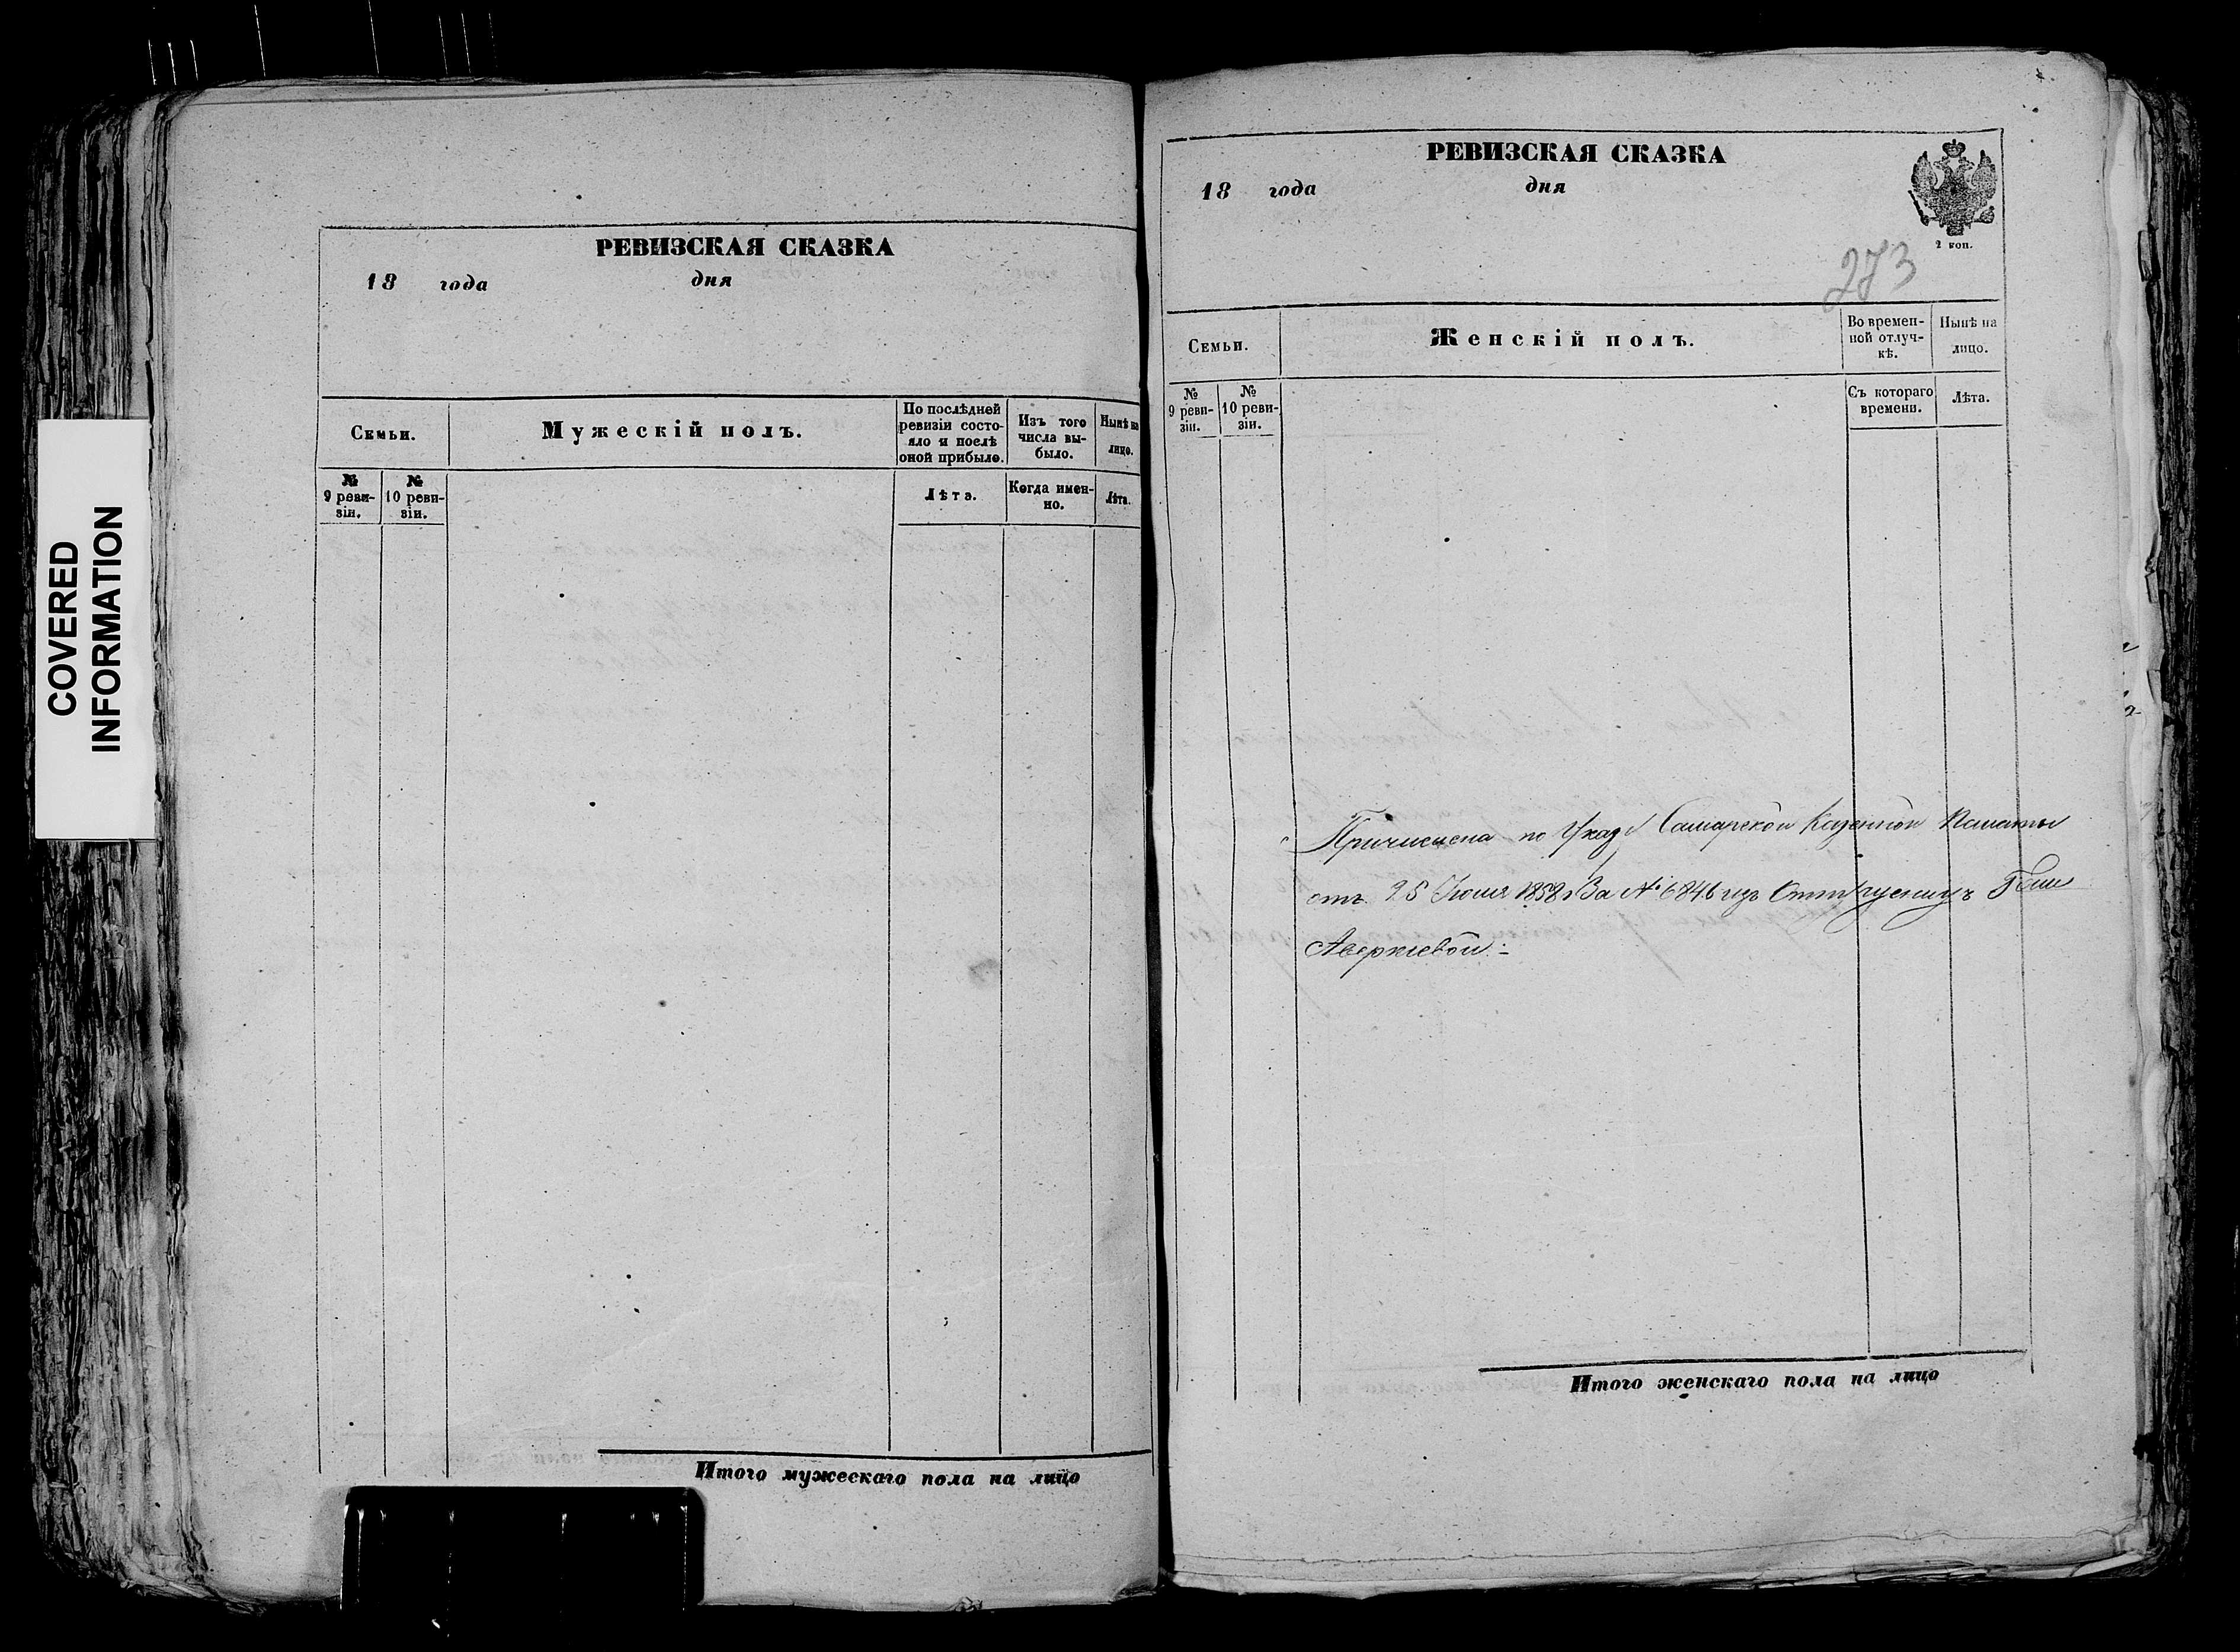 COVERED
INFORMATION
РЕВИЗСКАЯ СКАЗКА
18 года дня
Семьи.
Мужескій полъ.
По послѣдней
ревизіи состо-
яло и послѣ
оной прибыло.
Изъ того
числа вы-
было.
Нынѣ на
лицо.
№
9 реви-
зіи.
№
10 реви-
зіи.
Лѣта.
Когда имен-
но.
Лѣта.
Итого мужескаго пола на лицо
РЕВИЗСКАЯ СКАЗКА
18 года дня
2 коп.
273
Семьи.
Женскій полъ.
Во времен-
ной отлуч-
кѣ.
Нынѣ на
лицо.
№
9 реви-
зіи.
№
10 реви-
зіи.
Съ котораго
времени.
Лѣта.
Причислена по Указу Самарской Казенной Палаты
отъ 25 Іюля 1858 г За № 6846 изъ
Аверкіевой:-
Итого женскаго пола на лицо